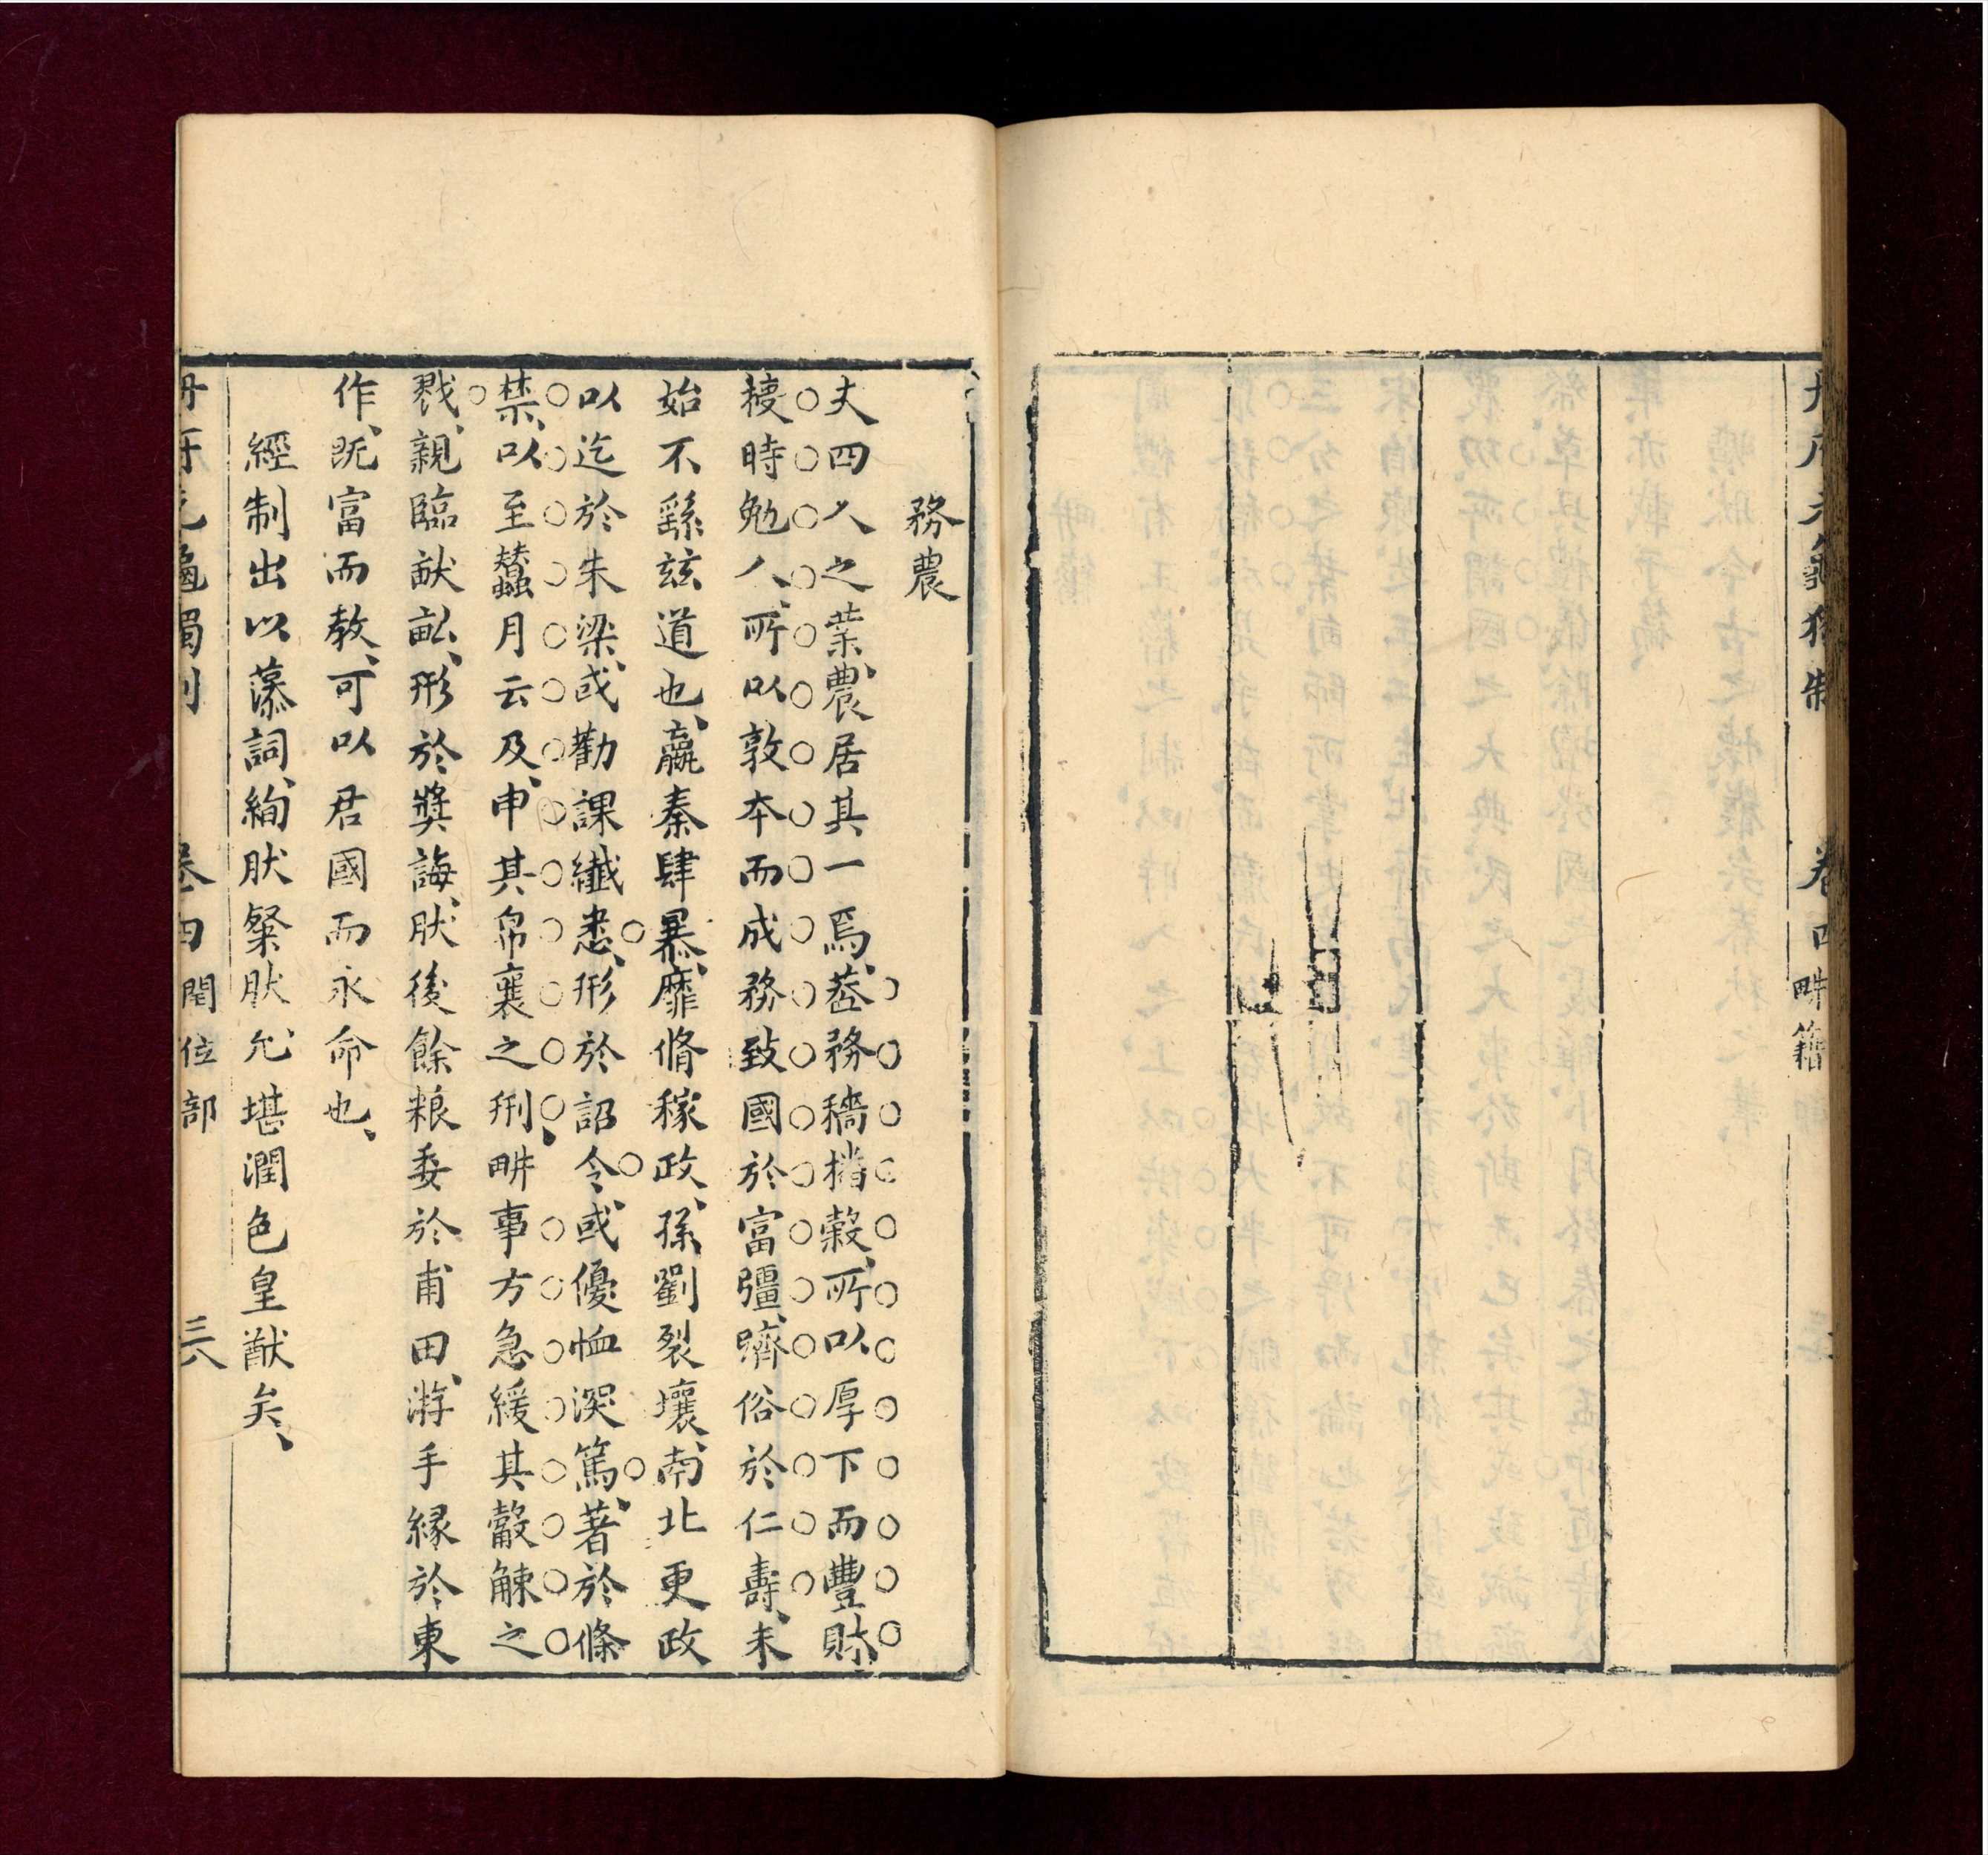 卷四 耕籍
務農
夫四人之業、農居其一焉、葢務穡搢穀、所以厚下而豐財、
接時勉人、所以敦本而成務、致國於富彊、躋俗於仁壽、未
始不繇玆道也、嬴秦肆暴、靡脩稼政、孫劉裂壤、南北更政
以迄於朱梁、或勸課纖悉、形於詔令、或優恤深篤、著於條
禁、以至蠶月云及、申其帛襄之𠛬、畊事方急、緩其觳觫之
戮、親臨畎畝、形於奬誨、肰後餘粮委於甫田、游手緣於東
作、既富而教、可以君國而永命也、
經制出以藻詞、絢肰粲肰、允堪潤色皇猷矣、
冊府元龜獨制 卷四 閏位部 三八